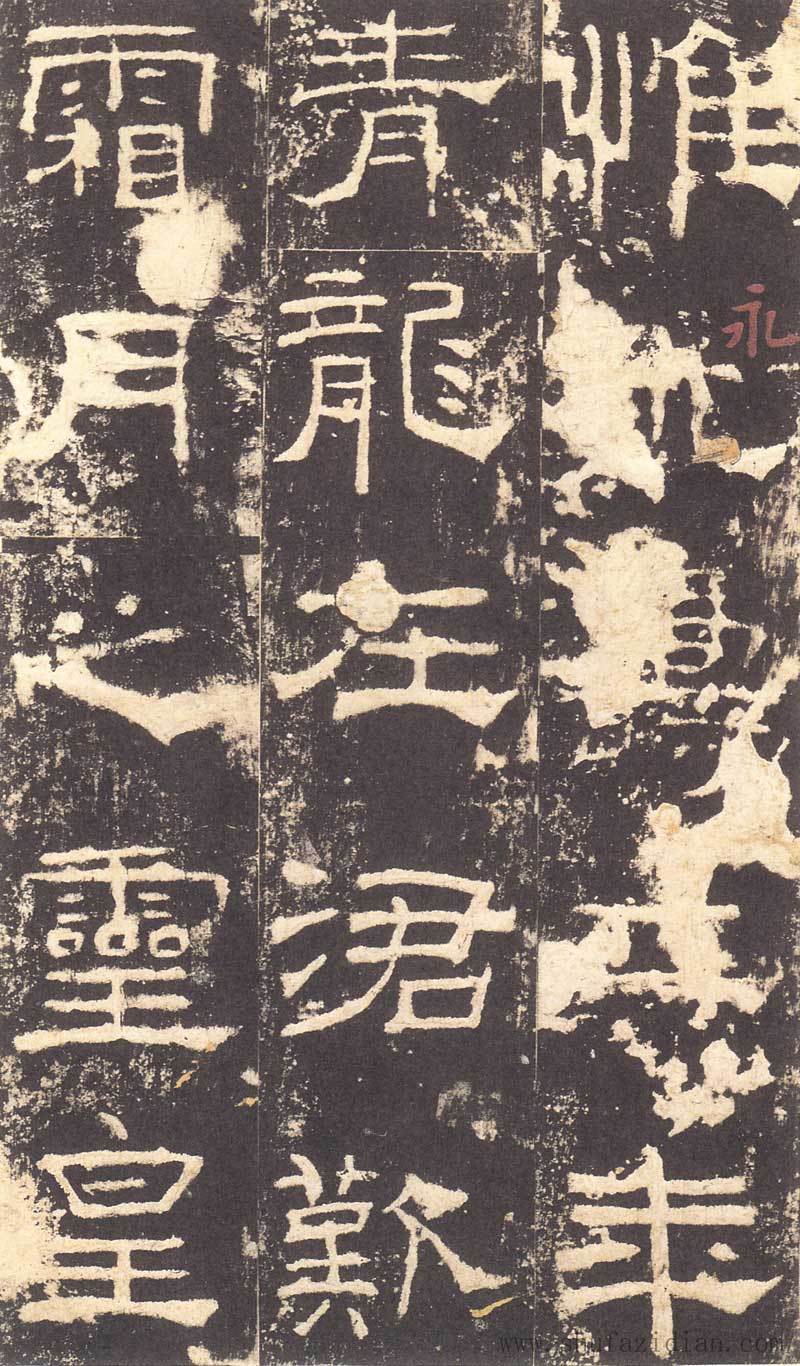 惟年
永
青龍在涒歎
霜月之靈皇
www.shufazidian.com